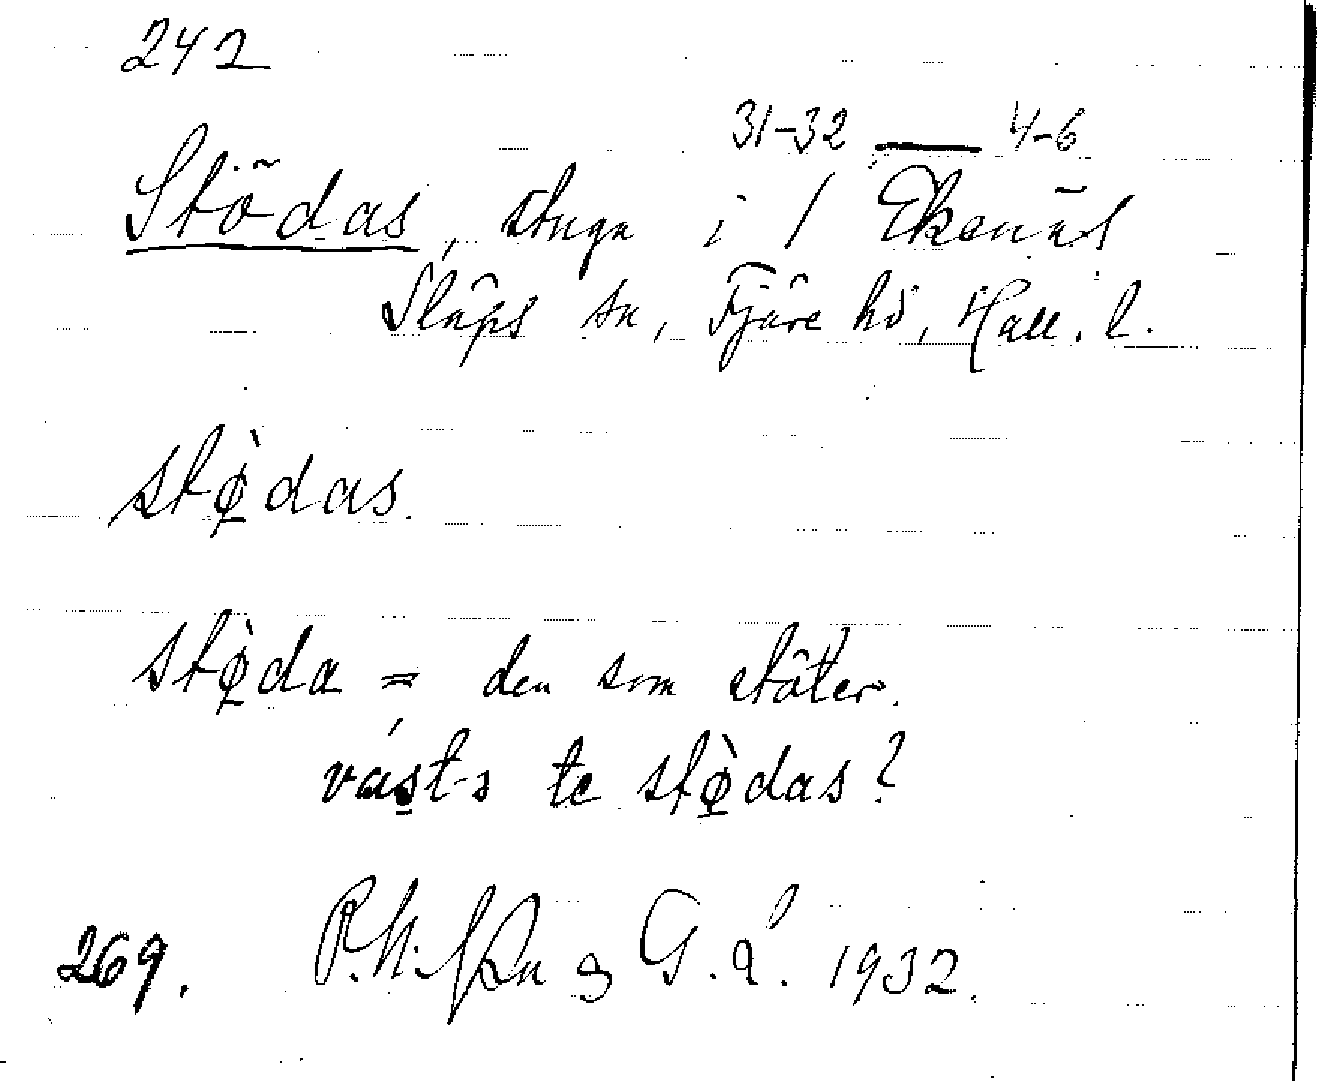 242
31-32 — 4-6
Stödas, stuga i / Ekenäs
Släps sn, Fjäre hd, Hall. l.
stø̀das.
stø̀da = den som stöter.
vást-s te stø̀das?
269. 1932.